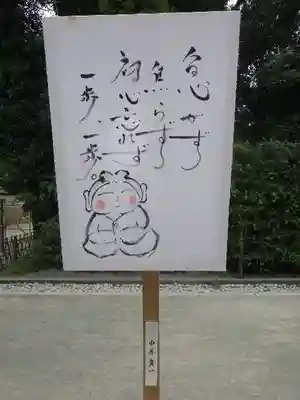 急がず
焦らず
初心忘れず
一歩、一歩。